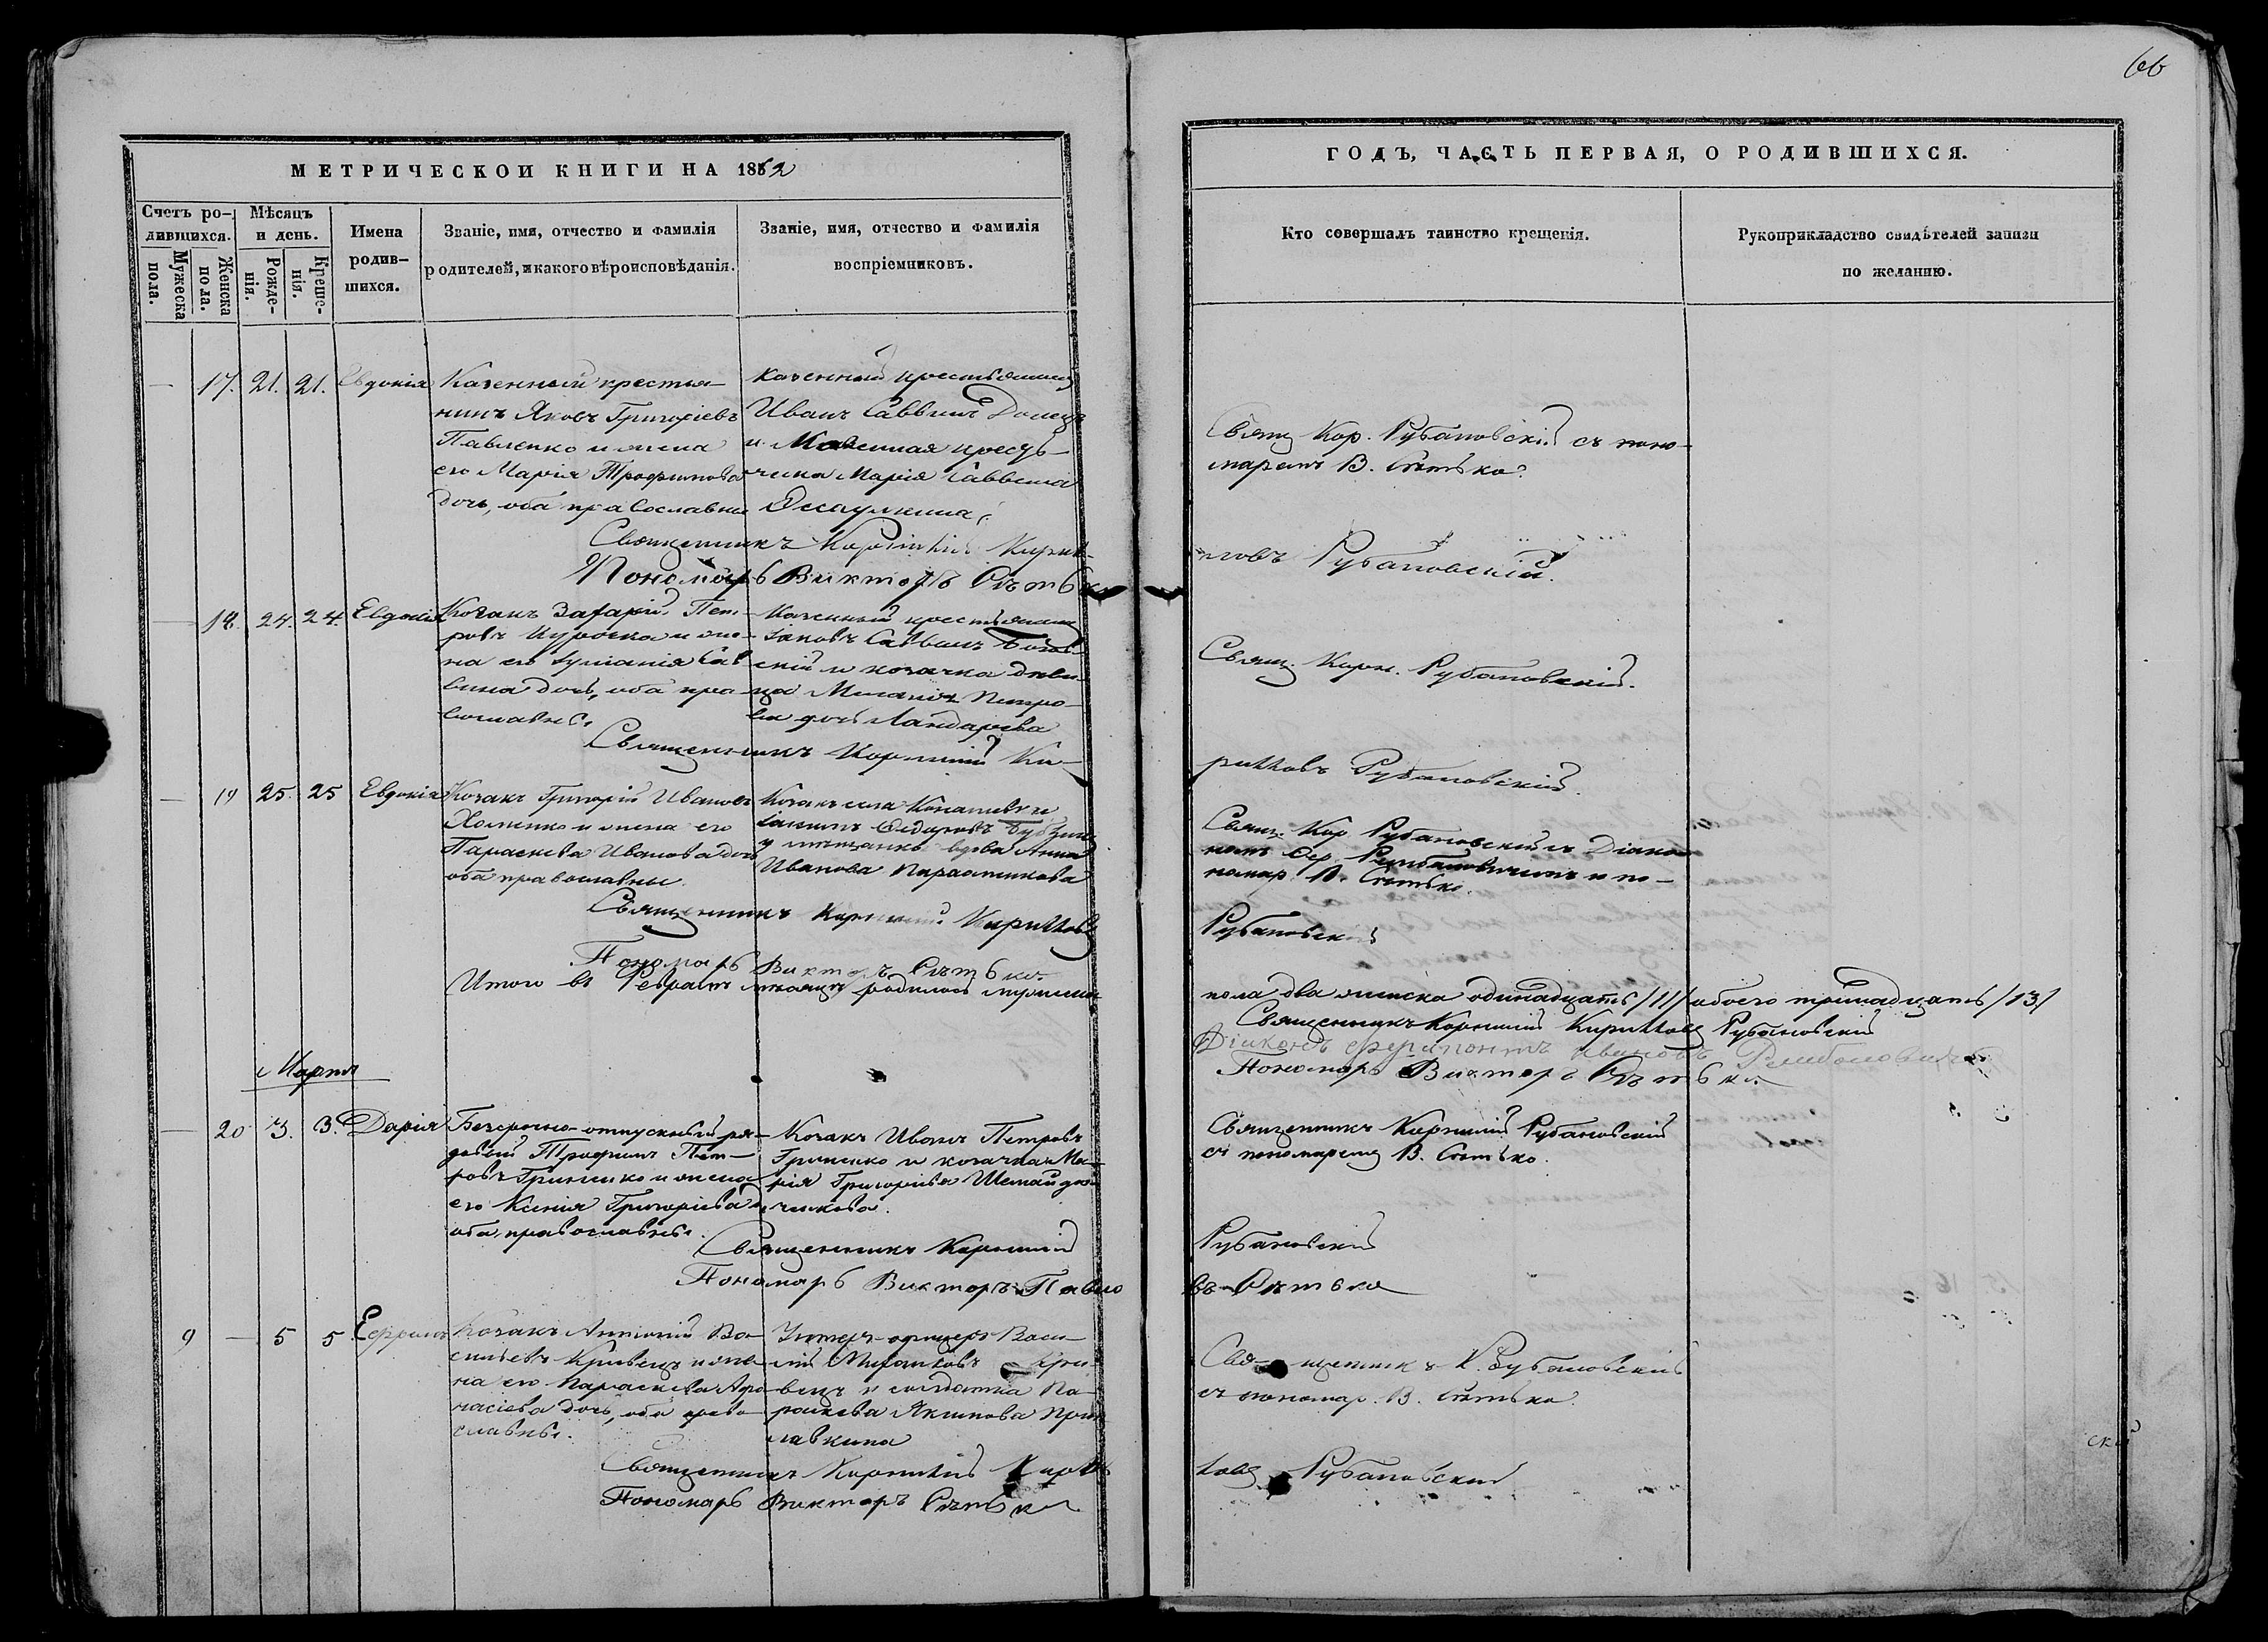 66
МЕТРИЧЕСКОЙ КНИГИ НА 1862
ГОДЪ, ЧАСТЬ ПЕРВАЯ, О РОДИВШИХСЯ.
Счетъ ро-
дившихся.
Мужеска
пола.
Женска
пола.
Мѣсяцъ
и день.
Рожде-
нія.
Креще-
нія.
Имена
родив-
шихся.
Званіе, имя, отчество и фамилія
родителей, и какого вѣроисповѣданія.
Званіе, имя, отчество и фамилія
воспріемниковъ.
Кто совершалъ таинство крещенія.
Рукоприкладство свидѣтелей записи
по желанію.
17. 21. 21. Евдокія
Казенный крестья-
нинъ Яковъ Григоріевъ
Павленко и жена
его Марія Трофимова
дочь, оба православные
Казенный крестьянинъ
Иванъ Саввинъ Донецъ
и Казенная кресть-
янка Марія Саввина
Свящ. Кор. Рубановскій съ поно-
маремъ В. Сѣтько.
Священникъ Корнилій Кирил-
ловъ Рубановскій.
Пономарь Викторъ Сѣтько
18. 24. 24. Евдокія
Козакъ Захарій Пет-
ровъ Курочка и же-
на его Сав-
вина дочь, оба пра-
вославные.
Казенный крестьянинъ
Іаковъ Саввинъ
скій и козачка дѣви-
ца Меланія Петро-
ва дочь
Свящ. Корн. Рубановскій.
Священникъ Корнилій Ки-
рилловъ Рубановскій.
19 25. 25 Евдокія
Козакъ Григорій Ивановъ
Хоменко и жена его
Параскева Иванова дочь
оба православные.
Іакимъ Федоровъ
и мѣщанка вдова Анна
Иванова
Свящ. Кор. Рубановскій съ Діако-
номъ Фер. и по-
номар. В. Сѣтько.
Священникъ Корнилій Кирилловъ
Рубановскій
Пономарь Викторъ Сѣтько.
Итого въ Февралѣ мѣсяцѣ родилось мужеска
пола два женска одинадцать /11/ обоего тринадцать /13/
Священникъ Корнилій Кирилловъ Рубановскій
Діаконъ Ферапонтъ Ивановъ
Пономарь Викторъ Сѣтько.
Мартъ
20 3. 3. Дарія
Безсрочно-отпускный ря-
довой Трофимъ Пет-
ровъ Гриненко и жена
его Ксенія Григоріева д.
оба православные.
Козакъ Иванъ Петровъ
Гриненко и козачка Ма-
рія Григоріева
Священникъ Корнилій Рубановскій
съ пономаремъ В. Сѣтько.
Священникъ Корнилій
Рубановскій
Пономарь Викторъ Павло
въ Сѣтько
9 — 5 5 Ефремъ
Козакъ Антоній Ва-
сильевъ Кривецъ и же-
на его Параскева Афа-
насіева дочь, оба право-
славные.
Унтеръ-офицеръ Васи-
лій Кри-
вецъ и солдатка Па-
раскева Якимова
Священникъ К. Рубановскій
съ пономар. В. Сѣтько.
Священникъ Корнилій Кирил
ловъ Рубановскій
Пономарь Викторъ Сѣтько